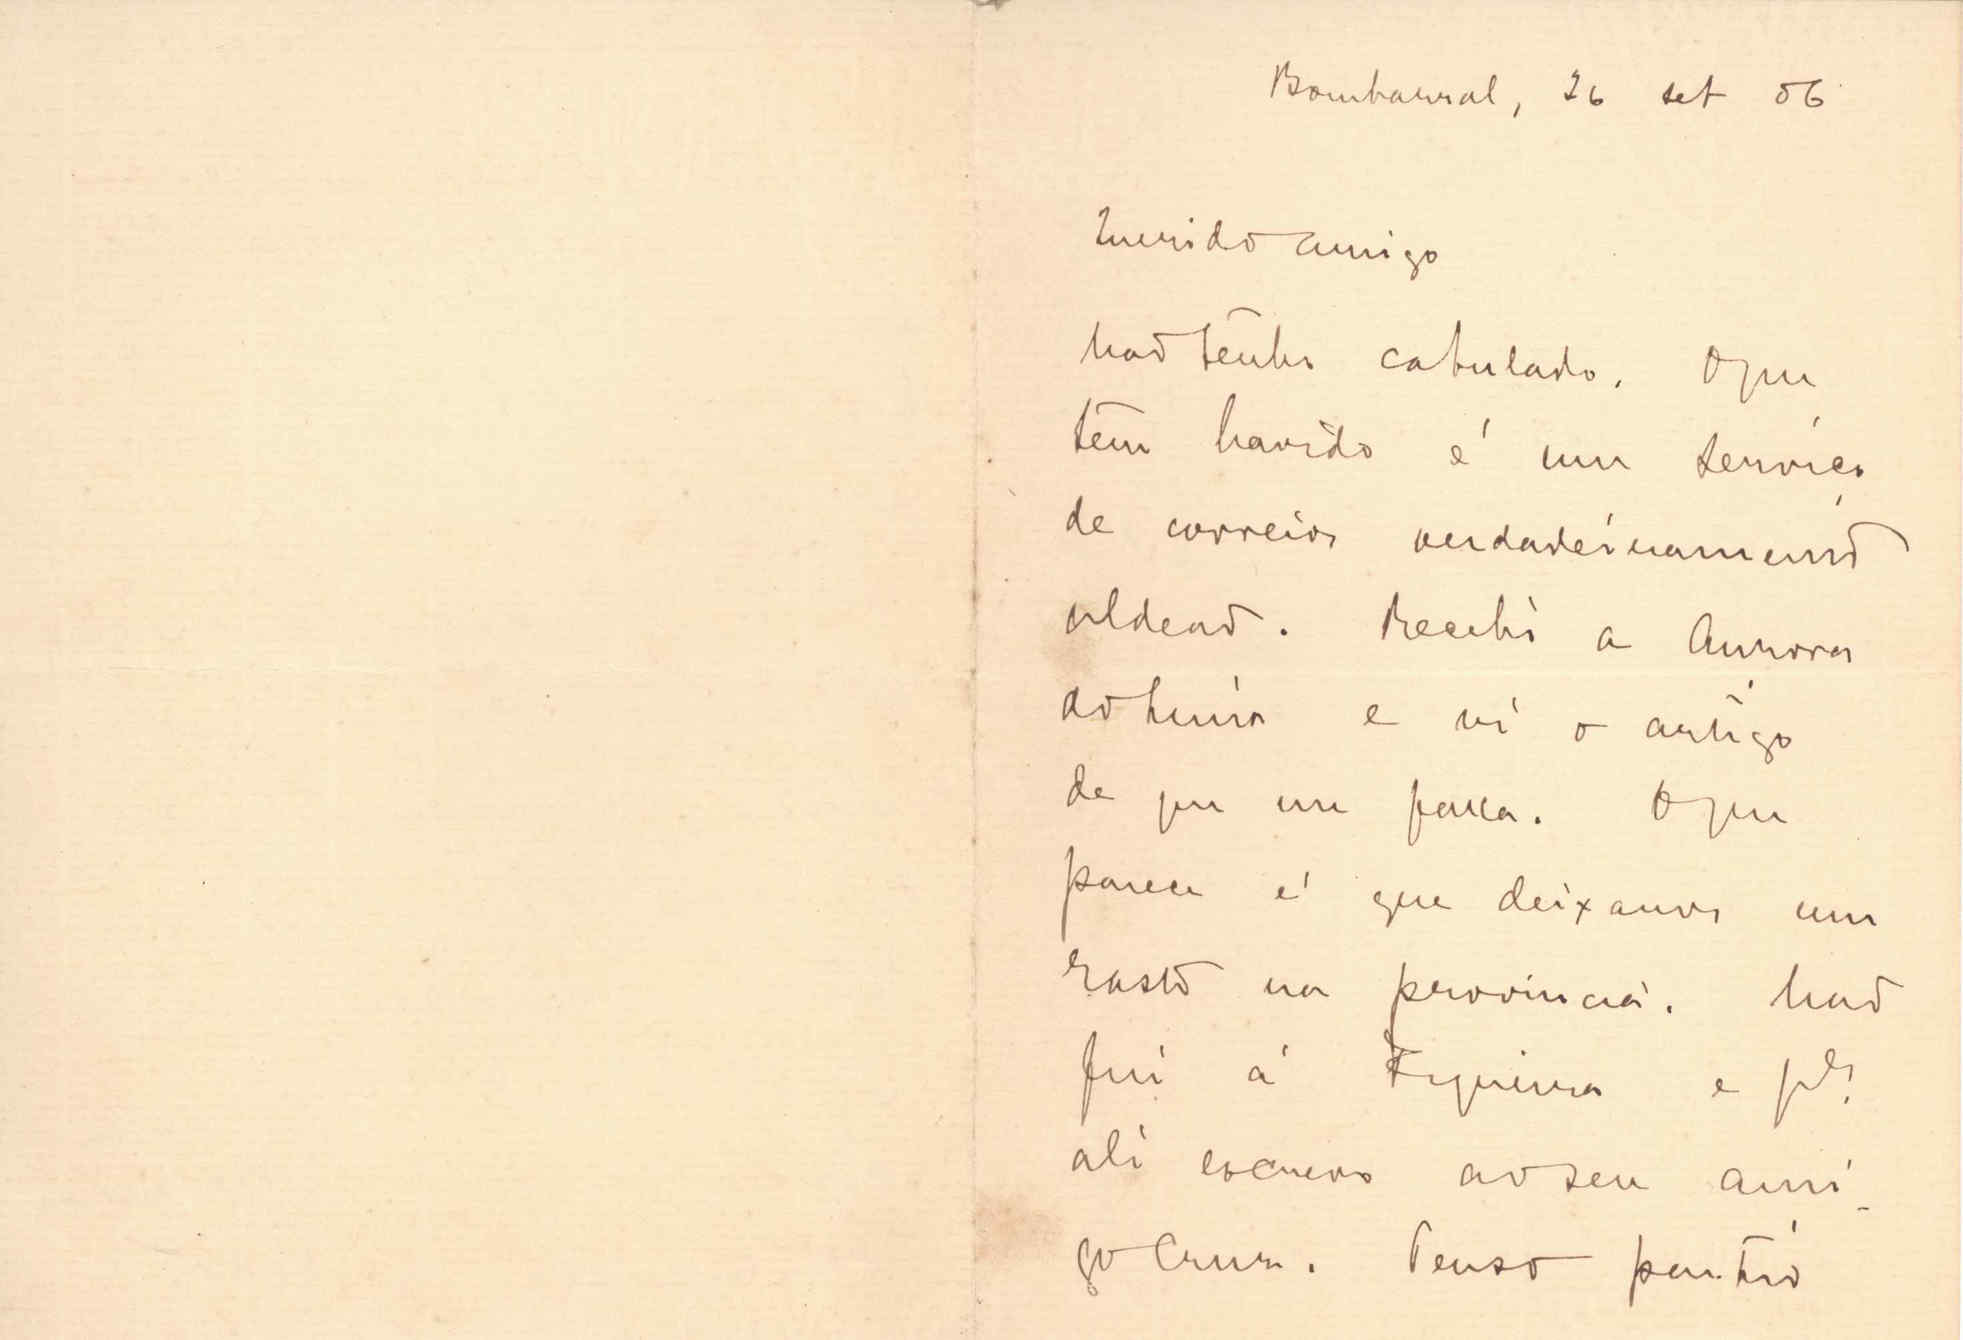 Bombarral, 26 set 06
Querido amigo
Não tenho cabulado. O que
tem havido é um serviço
de correios verdadeiramente
aldeão. Recebi a Aurora
do Lima e vi o artigo
de que me falla. O que
parece é que deixamos um
rasto na provincia. Não
fui á Figueira e pª
ali escrevo ao seu ami-
go Cruz. Penso partir